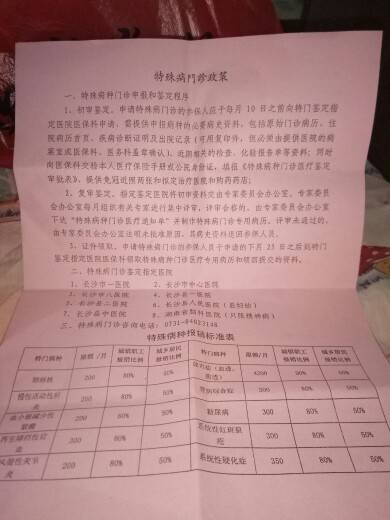 特殊病门诊政策
一、特殊病种门诊申报和鉴定程序
1、初审鉴定。申请特殊病门诊的参保人应于每月10日之前向特门鉴定指
定医院医保科申请，需提供申报病种的必要病史资料，包括原始门诊病历、住
院病历首页、疾病诊断证明及出院记录（可用复印件，但必须由提供医院的病
案室或医保科、医务科盖章确认）、近期相关的检查、化验报告单等资料；同时
向医保科交验本人医疗保险手册或公民身份证，填报《特殊病种门诊医疗鉴定
审批表》，提供免冠近照两张和拟定治疗医院和购药药店；
2、复审鉴定。指定鉴定医院将初审资料交由专家委员会办公室，专家委员
会办公室每月组织有关专家进行集中评审，评审合格的，由专家委员会办公室
下达“特殊病种门诊医疗通知单”并制作特殊病种门诊专用病历。评审未通过的，
由专家委员会办公室注明未批准原因，其病史资料送回参保人员。
3、证件领取。申请特殊病门诊的参保人员于申请的下月25日之后到特门
鉴定指定医院医保科领取特殊病种门诊医疗专用病历和领回提交的资料。
二、特殊病门诊鉴定指定医院
1、长沙市一医院 2、长沙市中心医院
长沙市八医院 长沙县一医院
长沙县二医院 长沙县人民医院
长沙县中医院 湖南省脑科医院
三、特殊病门诊咨询电话：0731-84023148
特殊病种报销标准表
特门病种 限额/月 城镇职工报销比例 城乡居民报销比例 特门病种 限额/月 城镇职工报销比例 城乡居民报销比例
200 80% 50% 4200
慢性活动性肝炎 200 80% 50% 300 80% 50%
血小板减少性紫癜 200 80% 50% 糖尿病 300 80% 50%
再生障碍性贫血 200 80% 50% 系统性红斑狼疮 300 80% 50%
风湿性关节炎 200 80% 50% 系统性硬化症 350 80% 50%